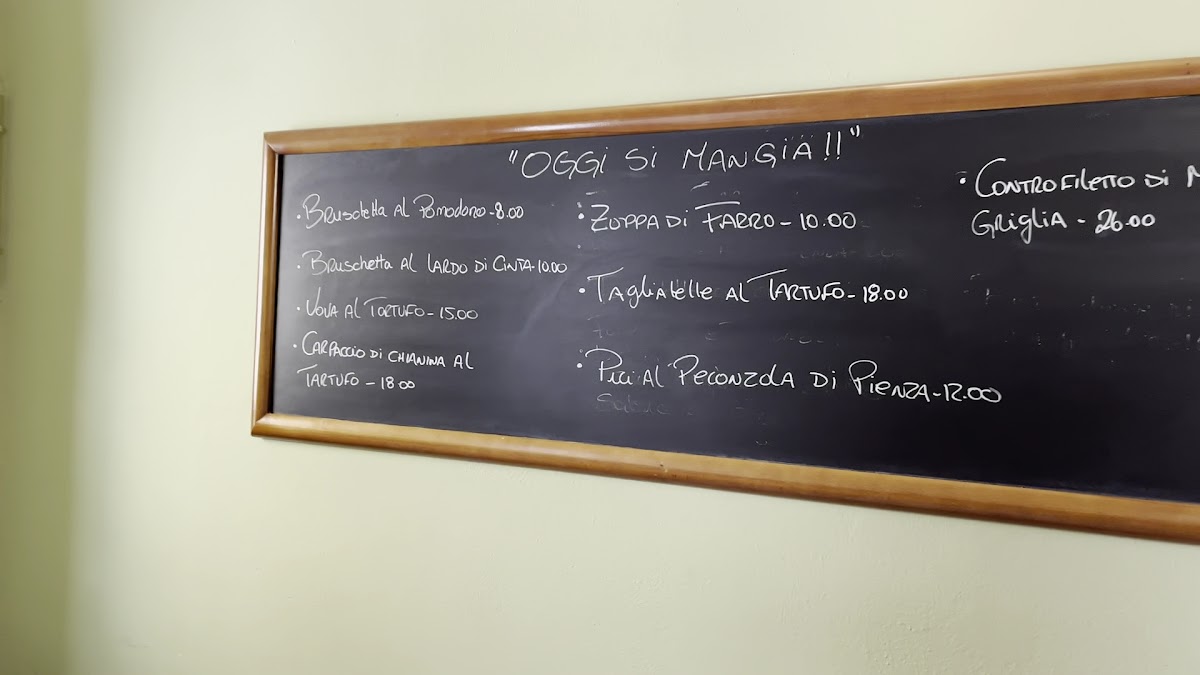 "OGGI SI MANGIA!!"
• BRUSCHETTA AL POMODORO - 8.00
• BRUSCHETTA AL LARDO DI CINTA - 10.00
• UOVA AL TARTUFO - 15.00
• CARPACCIO DI CHIANINA AL
TARTUFO - 18.00
• ZUPPA DI FARRO - 10.00
• TAGLIATELLE AL TARTUFO - 18.00
• PICI AL PECONZOLA DI PIENZA - 12.00
• CONTROFILETTO DI
GRIGLIA - 26.00